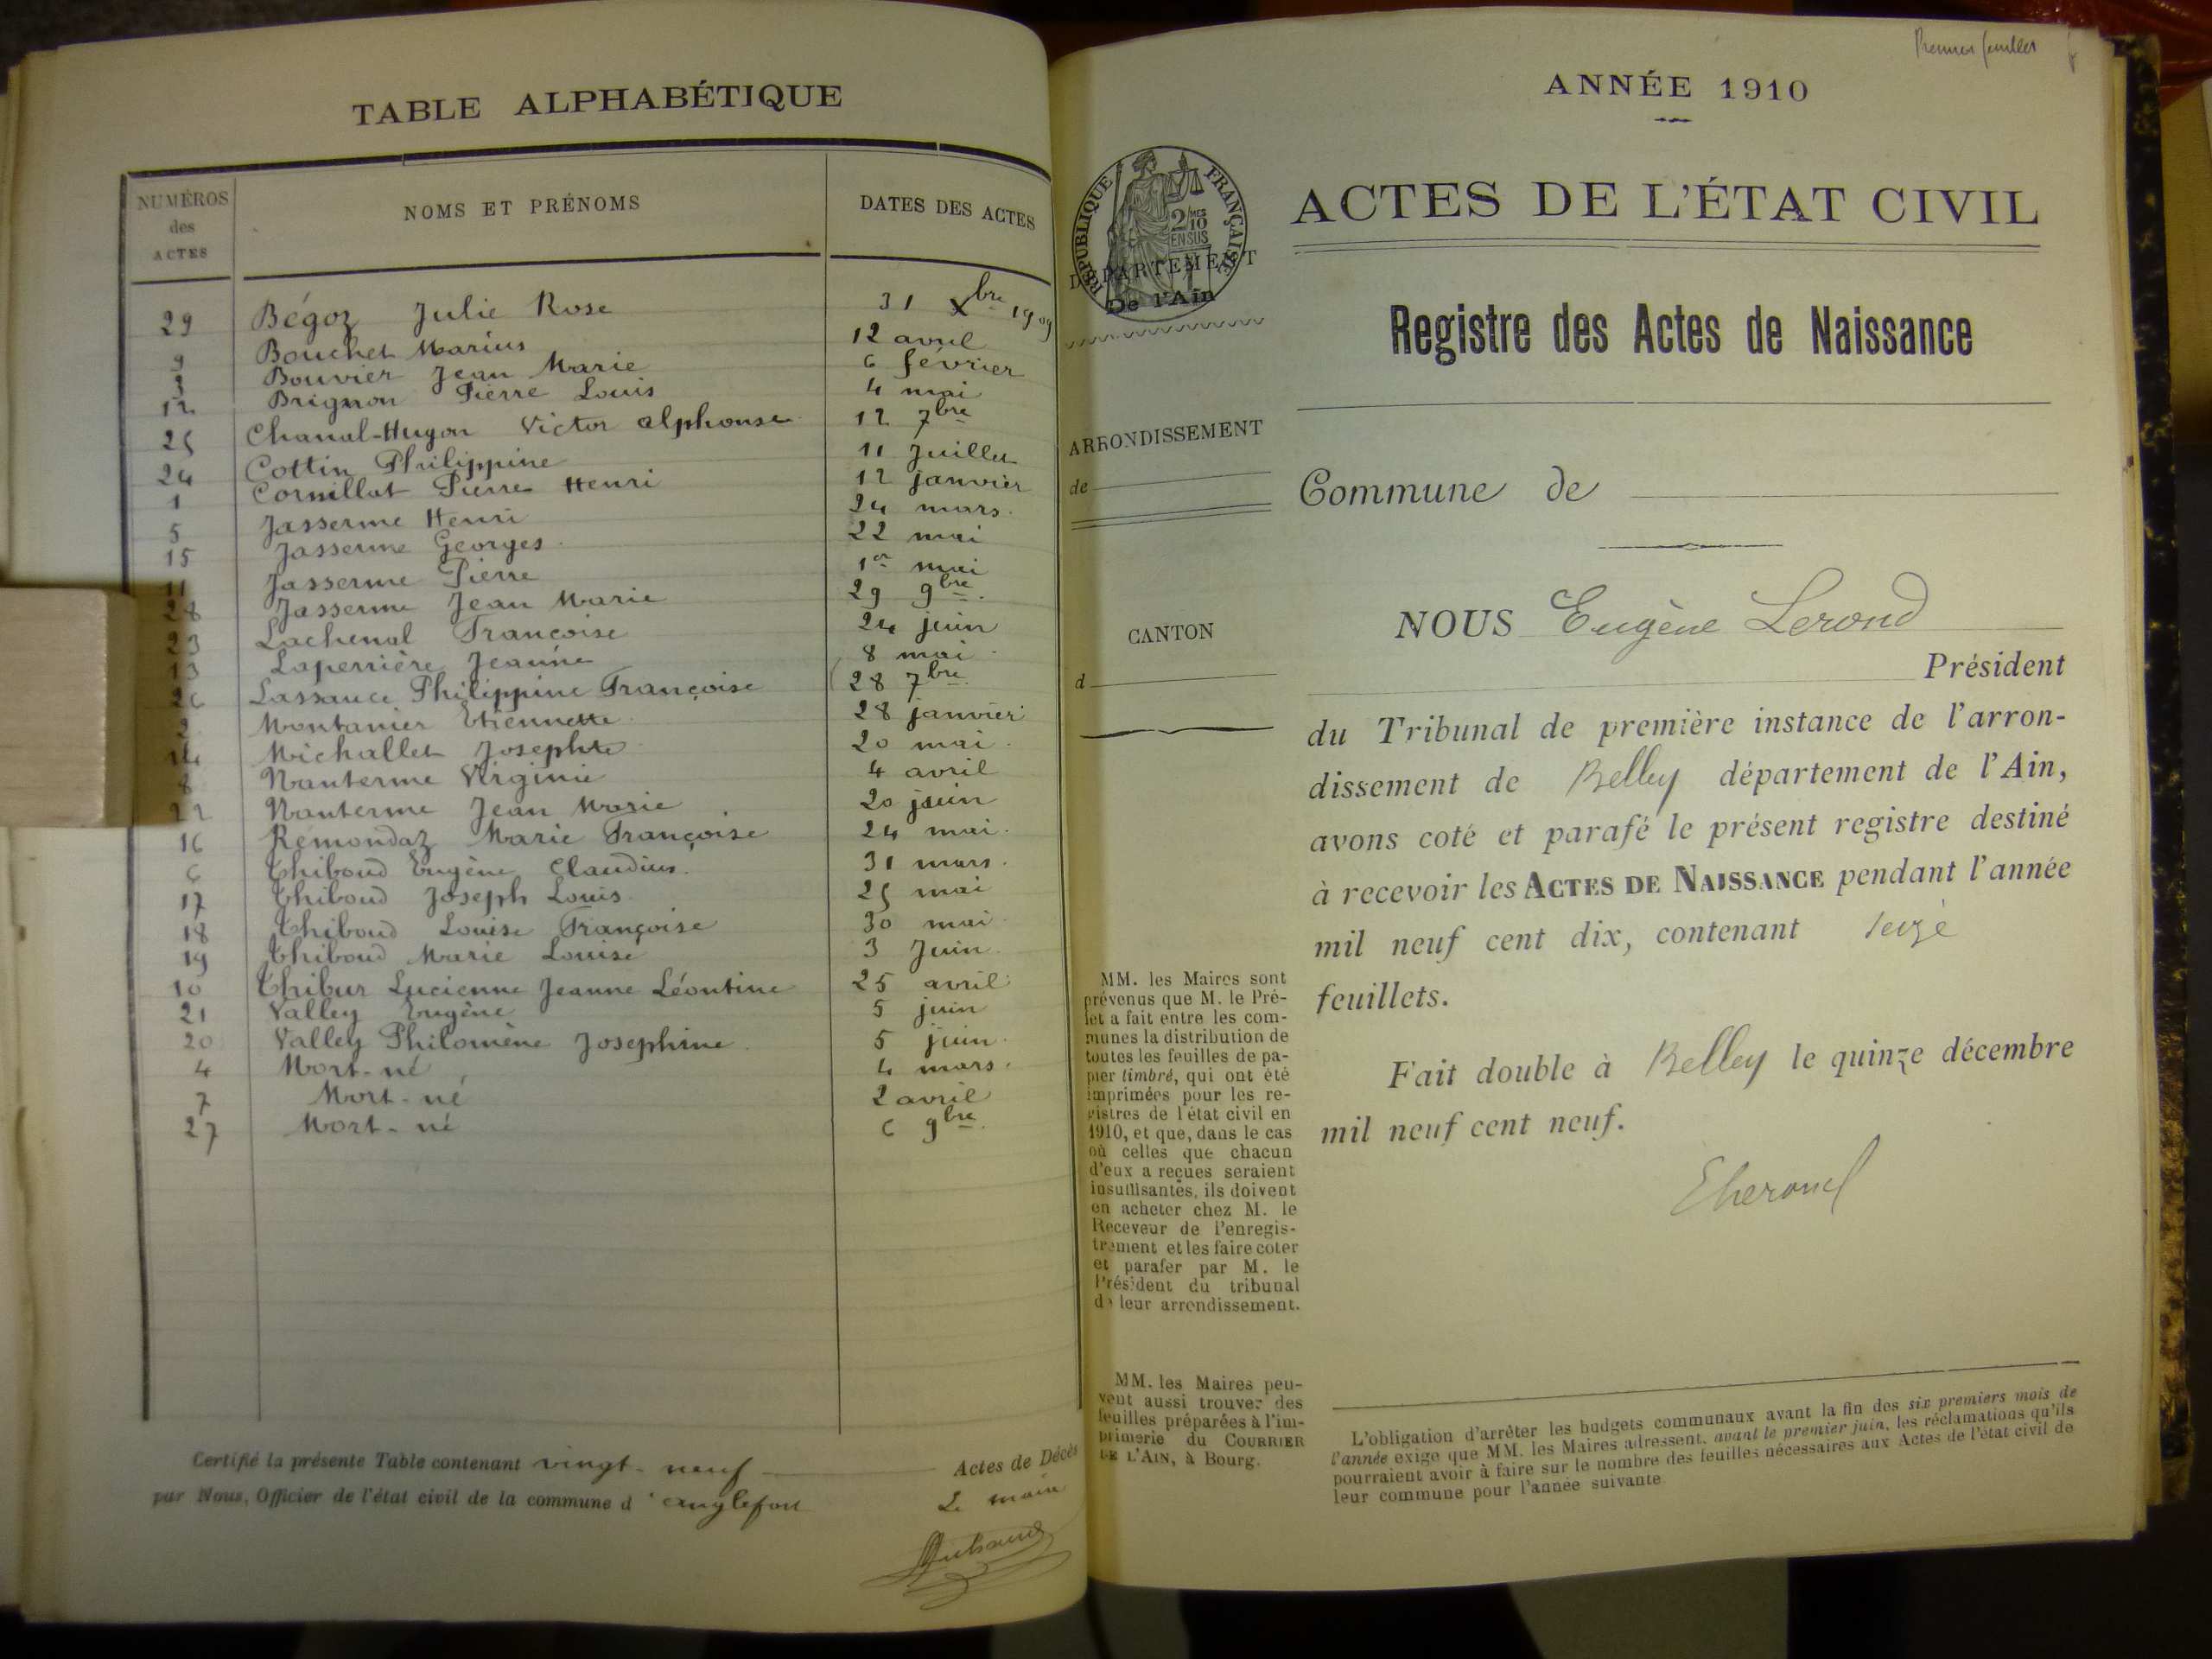 TABLE ALPHABÉTIQUE
NUMÉROS des ACTES
NOMS ET PRÉNOMS
DATES DES ACTES
29 Bégoz Julie Rose 31 Xbre 1909
9 Bouchet Marius 12 avril
3 Bouvier Jean Marie 6 février
12 Brignon Pierre Louis 4 mai
25 Chanal-Hugon Victor alphonse 12 7bre
24 Cottin Philippine 11 Juillet
1 Cornillat Pierre Henri 12 janvier
5 Jasserme Henri 24 mars.
15 Jasserme Georges 22 mai
11 Jasserme Pierre 1er mai
28 Jasserme Jean Marie 29 9bre
23 Lachenal Françoise 24 juin
13 Laperrière Jeanne 8 mai
26 Lassauce Philippine Françoise 28 7bre
2 Montanier Etiennette 28 janvier
14 Michallet Josephte 20 mai
8 Nanterme Virginie 4 avril
22 Nanterme Jean Marie 20 juin
16 Rémondaz Marie Françoise 24 mai.
6 Thiboud Eugène Claudius. 31 mars.
17 Thiboud Joseph Louis 25 mai
18 Thiboud Louise Françoise 30 mai
19 Thiboud Marie Louise 3 Juin
10 Thibus Lucienne Jeanne Léontine 25 avril
21 Valley Eugène 5 juin
20 Valley Philomène Josephine 5 juin
4 Mort-né 4 mars.
7 Mort-né 2 avril
27 Mort-né 6 9bre
Certifié la présente Table contenant vingt-neuf Actes de Décès
par Nous, Officier de l'état civil de la commune d'anglefort
Le maire
Premier feuillet
ANNÉE 1910
RÉPUBLIQUE FRANÇAISE
2/10 MES
EN SUS
DÉPARTEMENT
De l'Ain
ARRONDISSEMENT
de
CANTON
d
MM. les Maires sont
prévenus que M. le Pré-
fet a fait entre les com-
munes la distribution de
toutes les feuilles de pa-
pier timbré, qui ont été
imprimées pour les re-
gistres de l'état civil en
1910, et que, dans le cas
où celles que chacun
d'eux a reçues seraient
insuffisantes, ils doivent
en acheter chez M. le
Receveur de l'enregis-
trement et les faire coter
et parafer par M. le
Président du tribunal
de leur arrondissement.
MM. les Maires peu-
vent aussi trouver des
feuilles préparées à l'im-
primerie du COURRIER
DE L'AIN, à Bourg.
ACTES DE L'ÉTAT CIVIL
Registre des Actes de Naissance
Commune de
NOUS Eugène Lerond
Président
du Tribunal de première instance de l'arron-
dissement de Belley département de l'Ain,
avons coté et parafé le présent registre destiné
à recevoir les ACTES DE NAISSANCE pendant l'année
mil neuf cent dix, contenant seize
feuillets.
Fait double à Belley le quinze décembre
mil neuf cent neuf.
L'obligation d'arrêter les budgets communaux avant la fin des six premiers mois de
l'année exige que MM. les Maires adressent, avant le premier juin, les réclamations qu'ils
pourraient avoir à faire sur le nombre des feuilles nécessaires aux Actes de l'état civil de
leur commune pour l'année suivante